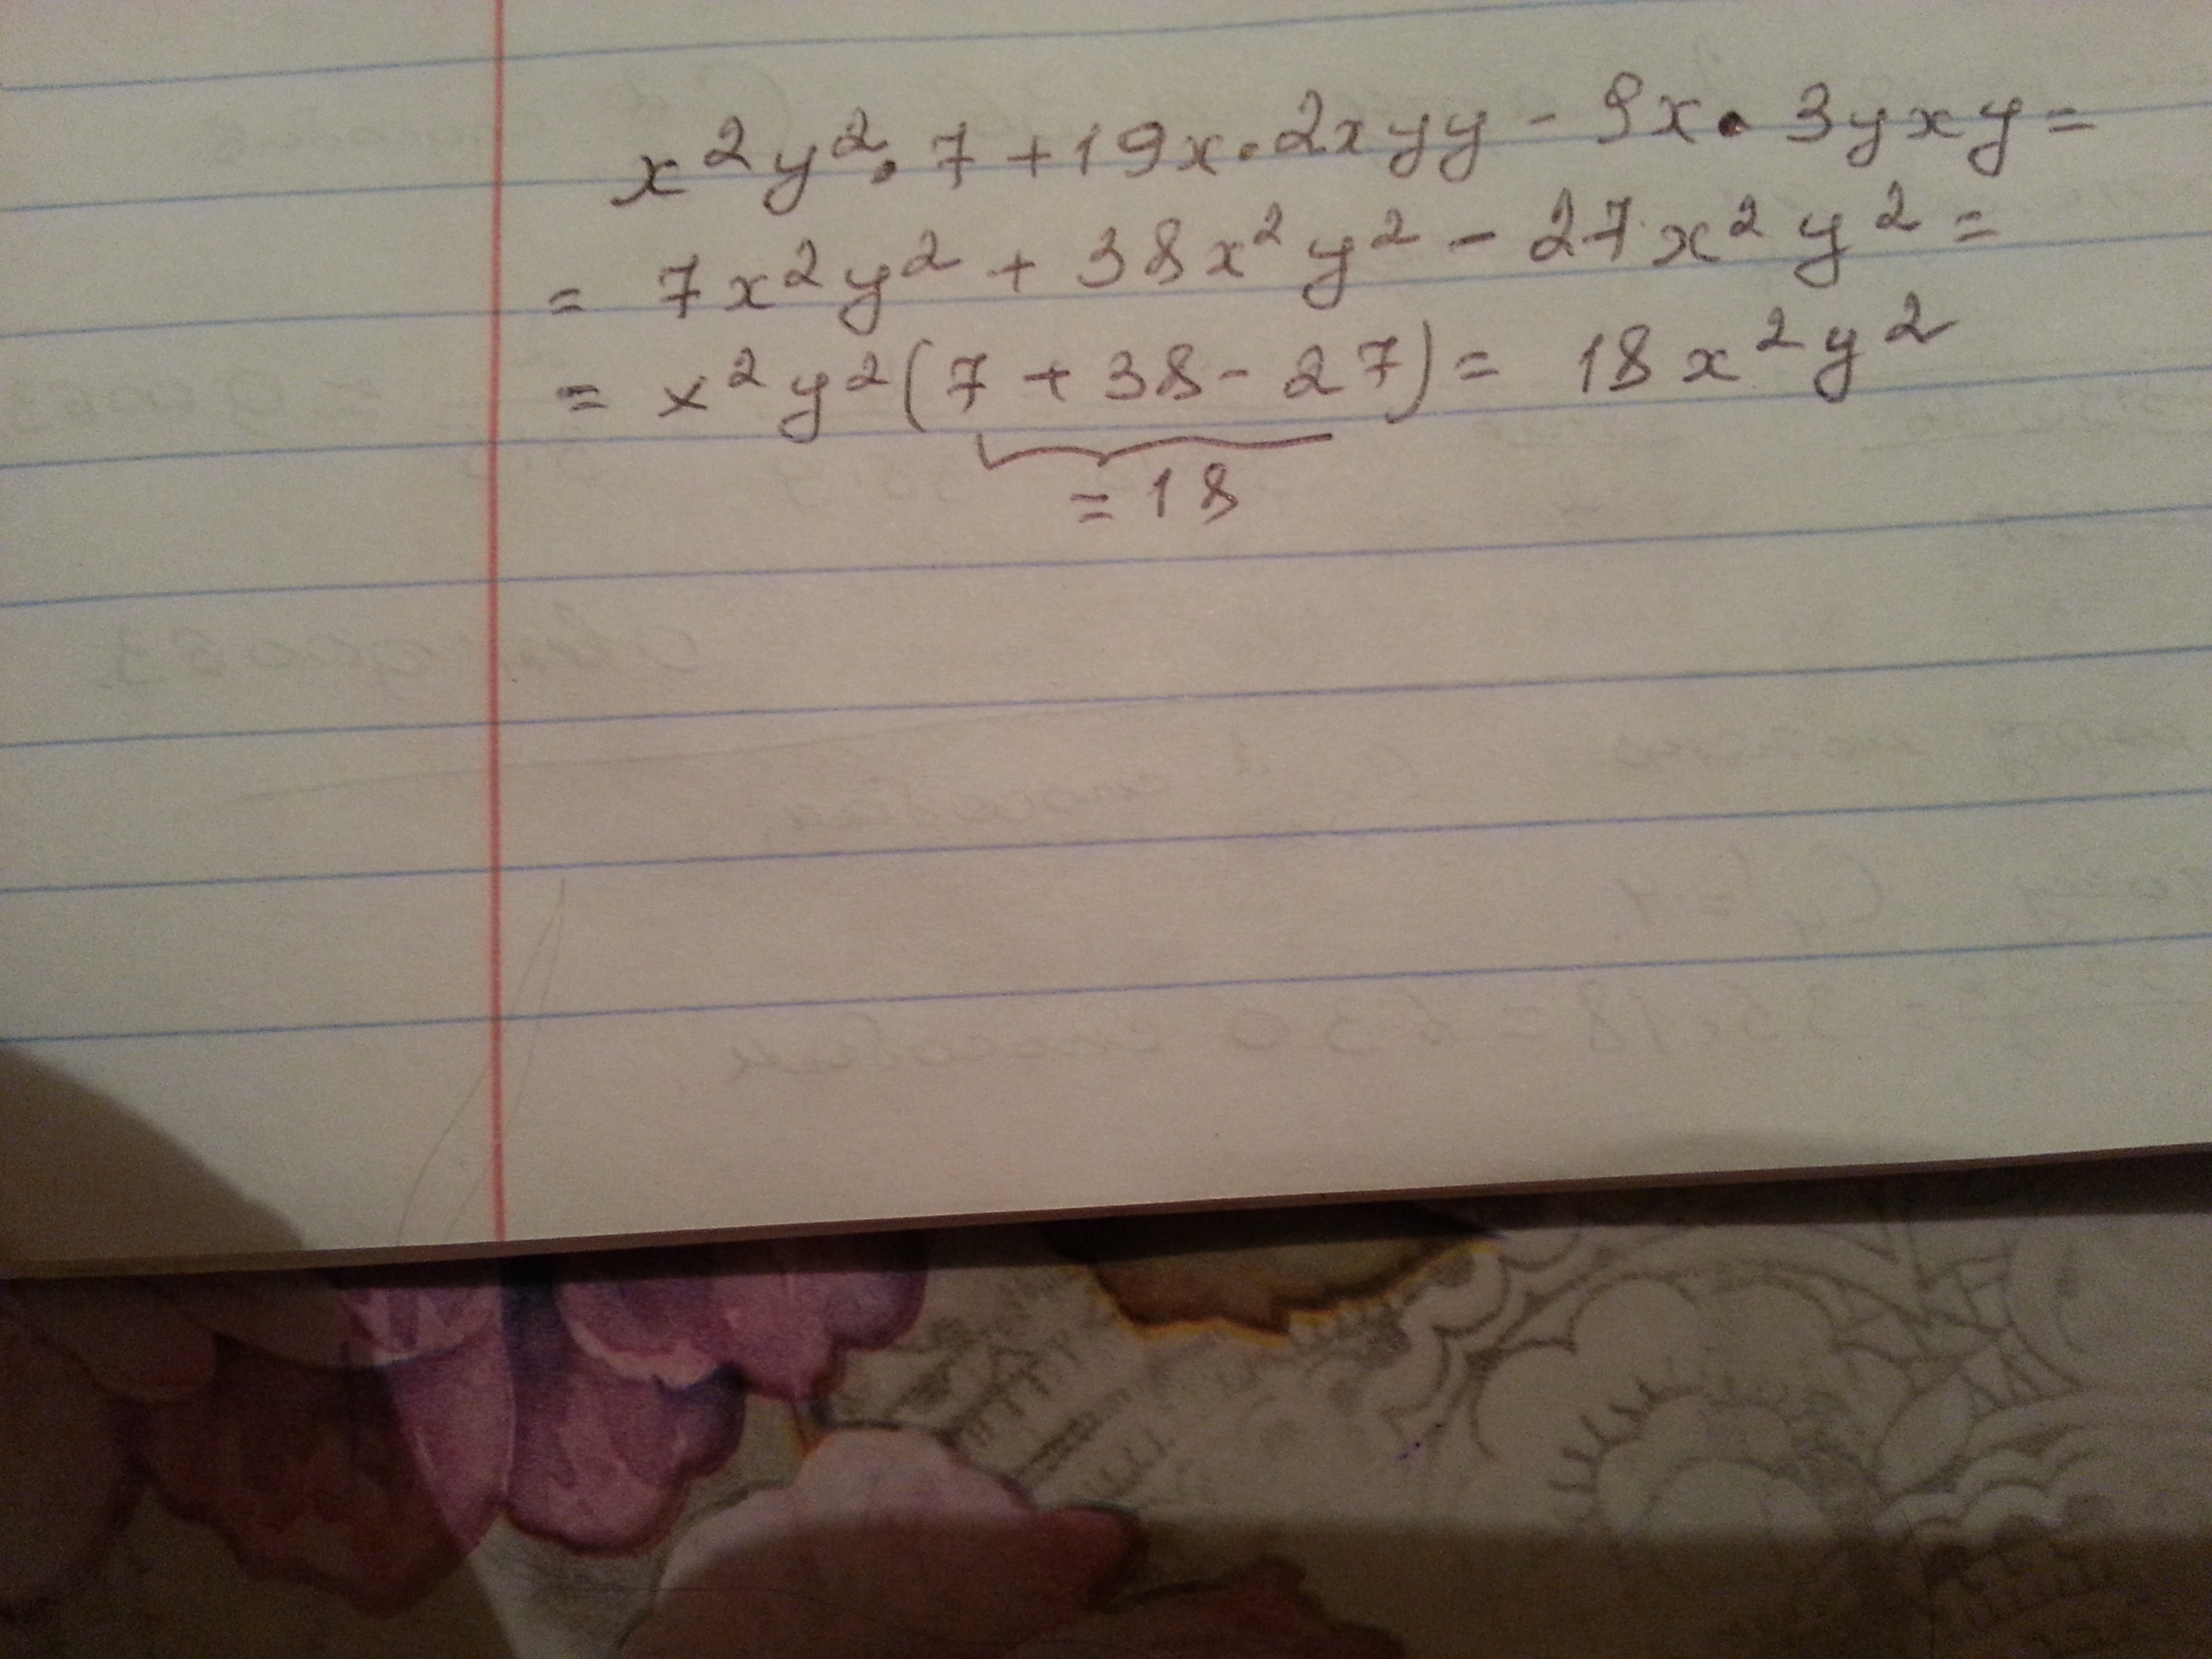 x² y² · 7 + 19x · 2xyy - 9x · 3yxy =
= 7x²y² + 38x²y² - 27x²y² =
= x²y²(7 + 38 - 27) = 18x²y²
= 18